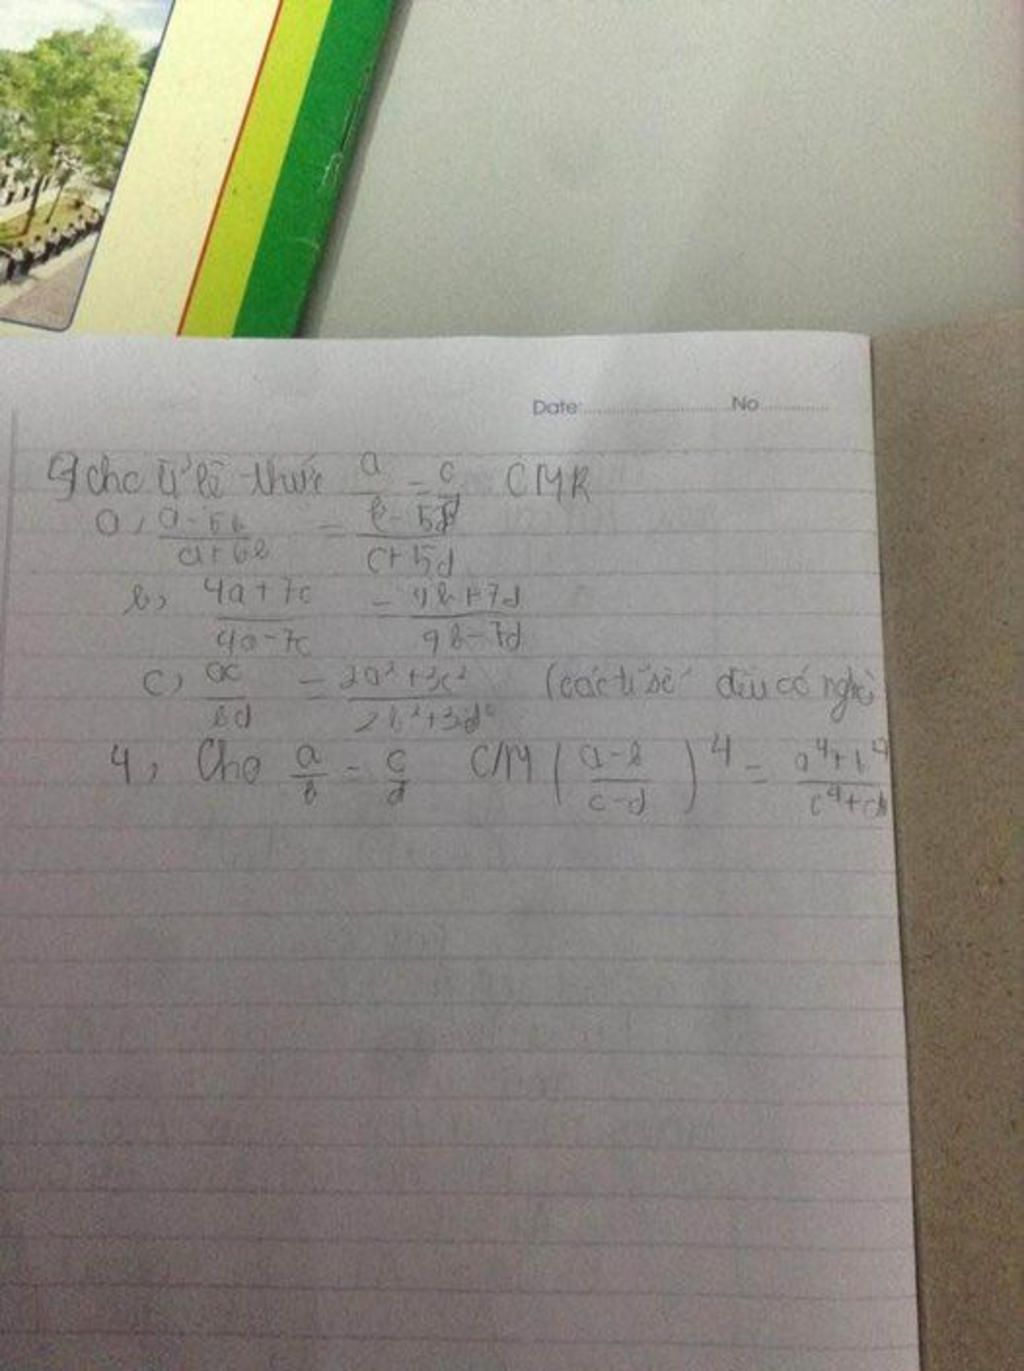 Date: No
cho tỉ lệ thức a/b = c/d CMR
a, a-5b/a+5b = c-5d/c+5d
b, 4a+7c/4a-7c = 4b+7d/4b-7d
c, ac/bd = 2a²+3c²/2b²+3d² (các tỉ số đều có nghĩ
4, Cho a/b = c/d CM (a-b/c-d)⁴ = a⁴+b⁴/c⁴+d